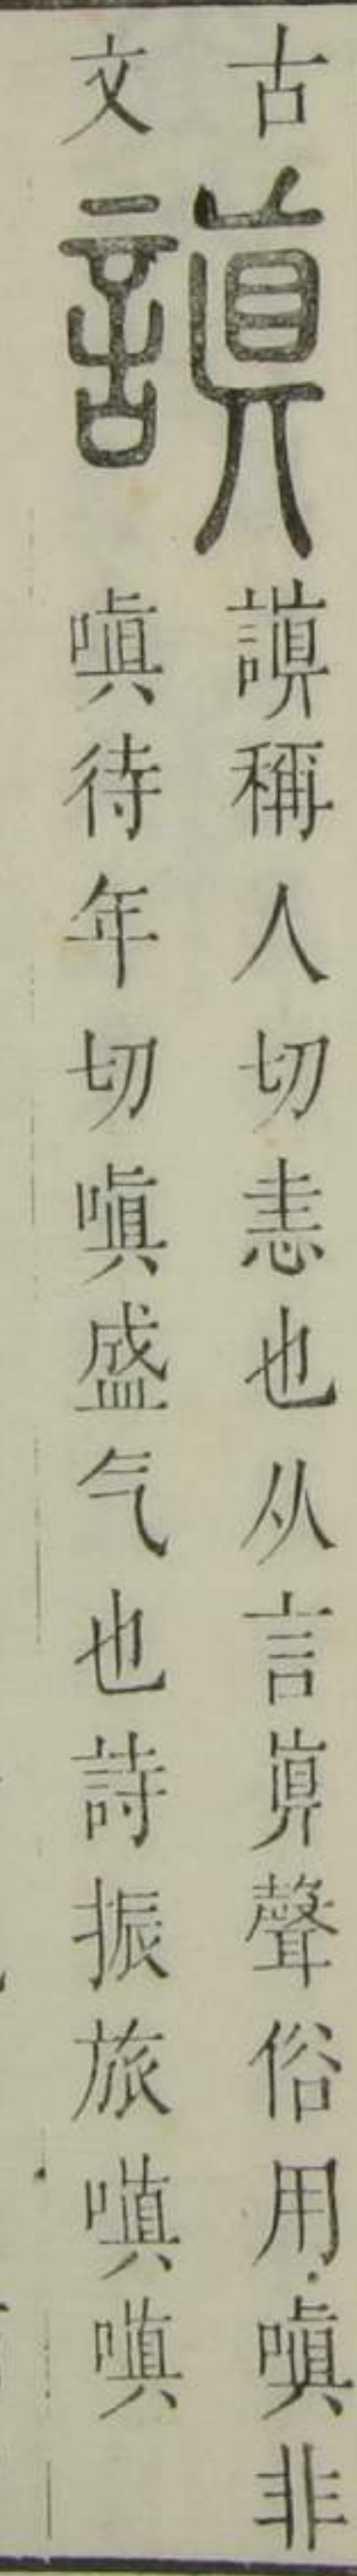 古文
謓
謓稱人切恚也从言眞聲俗用嗔非
嗔待年切嗔盛气也詩振旅嗔嗔